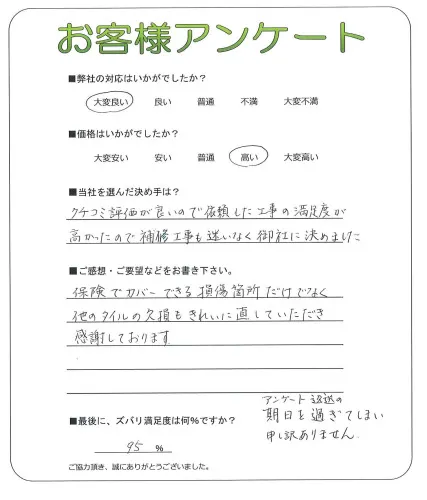 お客様アンケート
■弊社の対応はいかがでしたか？
大変良い 良い 普通 不満 大変不満
■価格はいかがでしたか？
大変安い 安い 普通 高い 大変高い
■当社を選んだ決め手は？
クチコミ評価が良いので依頼した工事の満足度が
高かったので補修工事も迷いなく御社に決めました
■ご感想・ご要望などをお書き下さい。
保険でカバーできる損傷箇所だけでなく
他のタイルの欠損もきれいに直していただき
感謝しております
アンケート返送の
期日を過ぎてしまい
申し訳ありません.
■最後に、ズバリ満足度は何%ですか？
95 %
ご協力頂き、誠にありがとうございました。